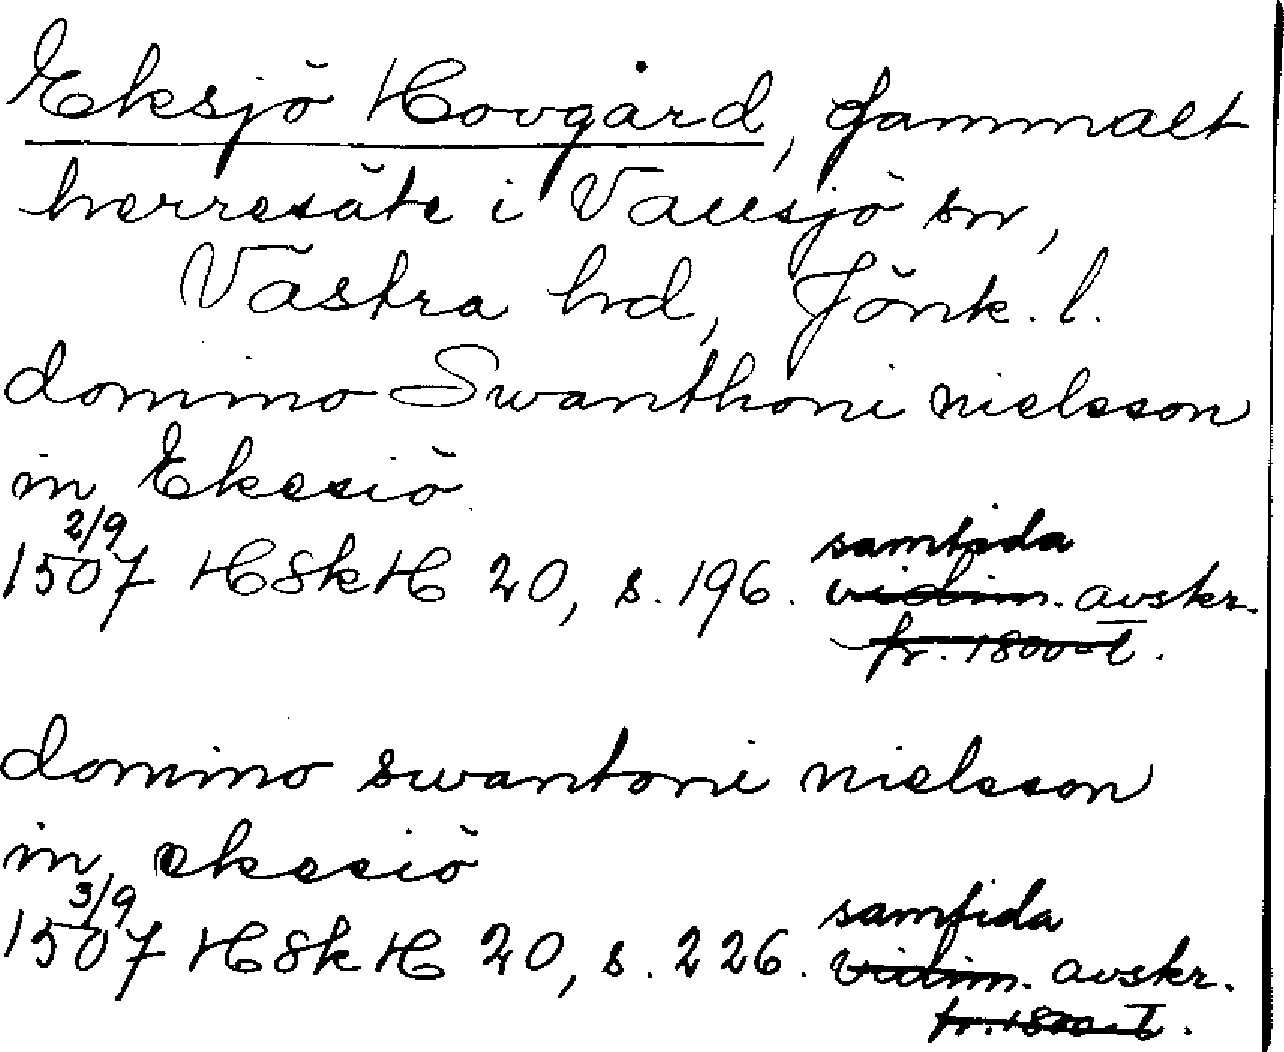 Eksjö Hovgård, gammalt
herresäte i Vallsjö sn,
Västra hd, Jönk. l.
domino Swanthoni nielsson
in Ekesiö
2/9 samtida
1507 HSkH 20, s. 196. vidim. avskr.
fr. 1800-t.
domino swantoni nielsson
in ekesiö
3/9 samtida
1507 HSkH 20, s. 226. vidim. avskr.
fr. 1800-t.